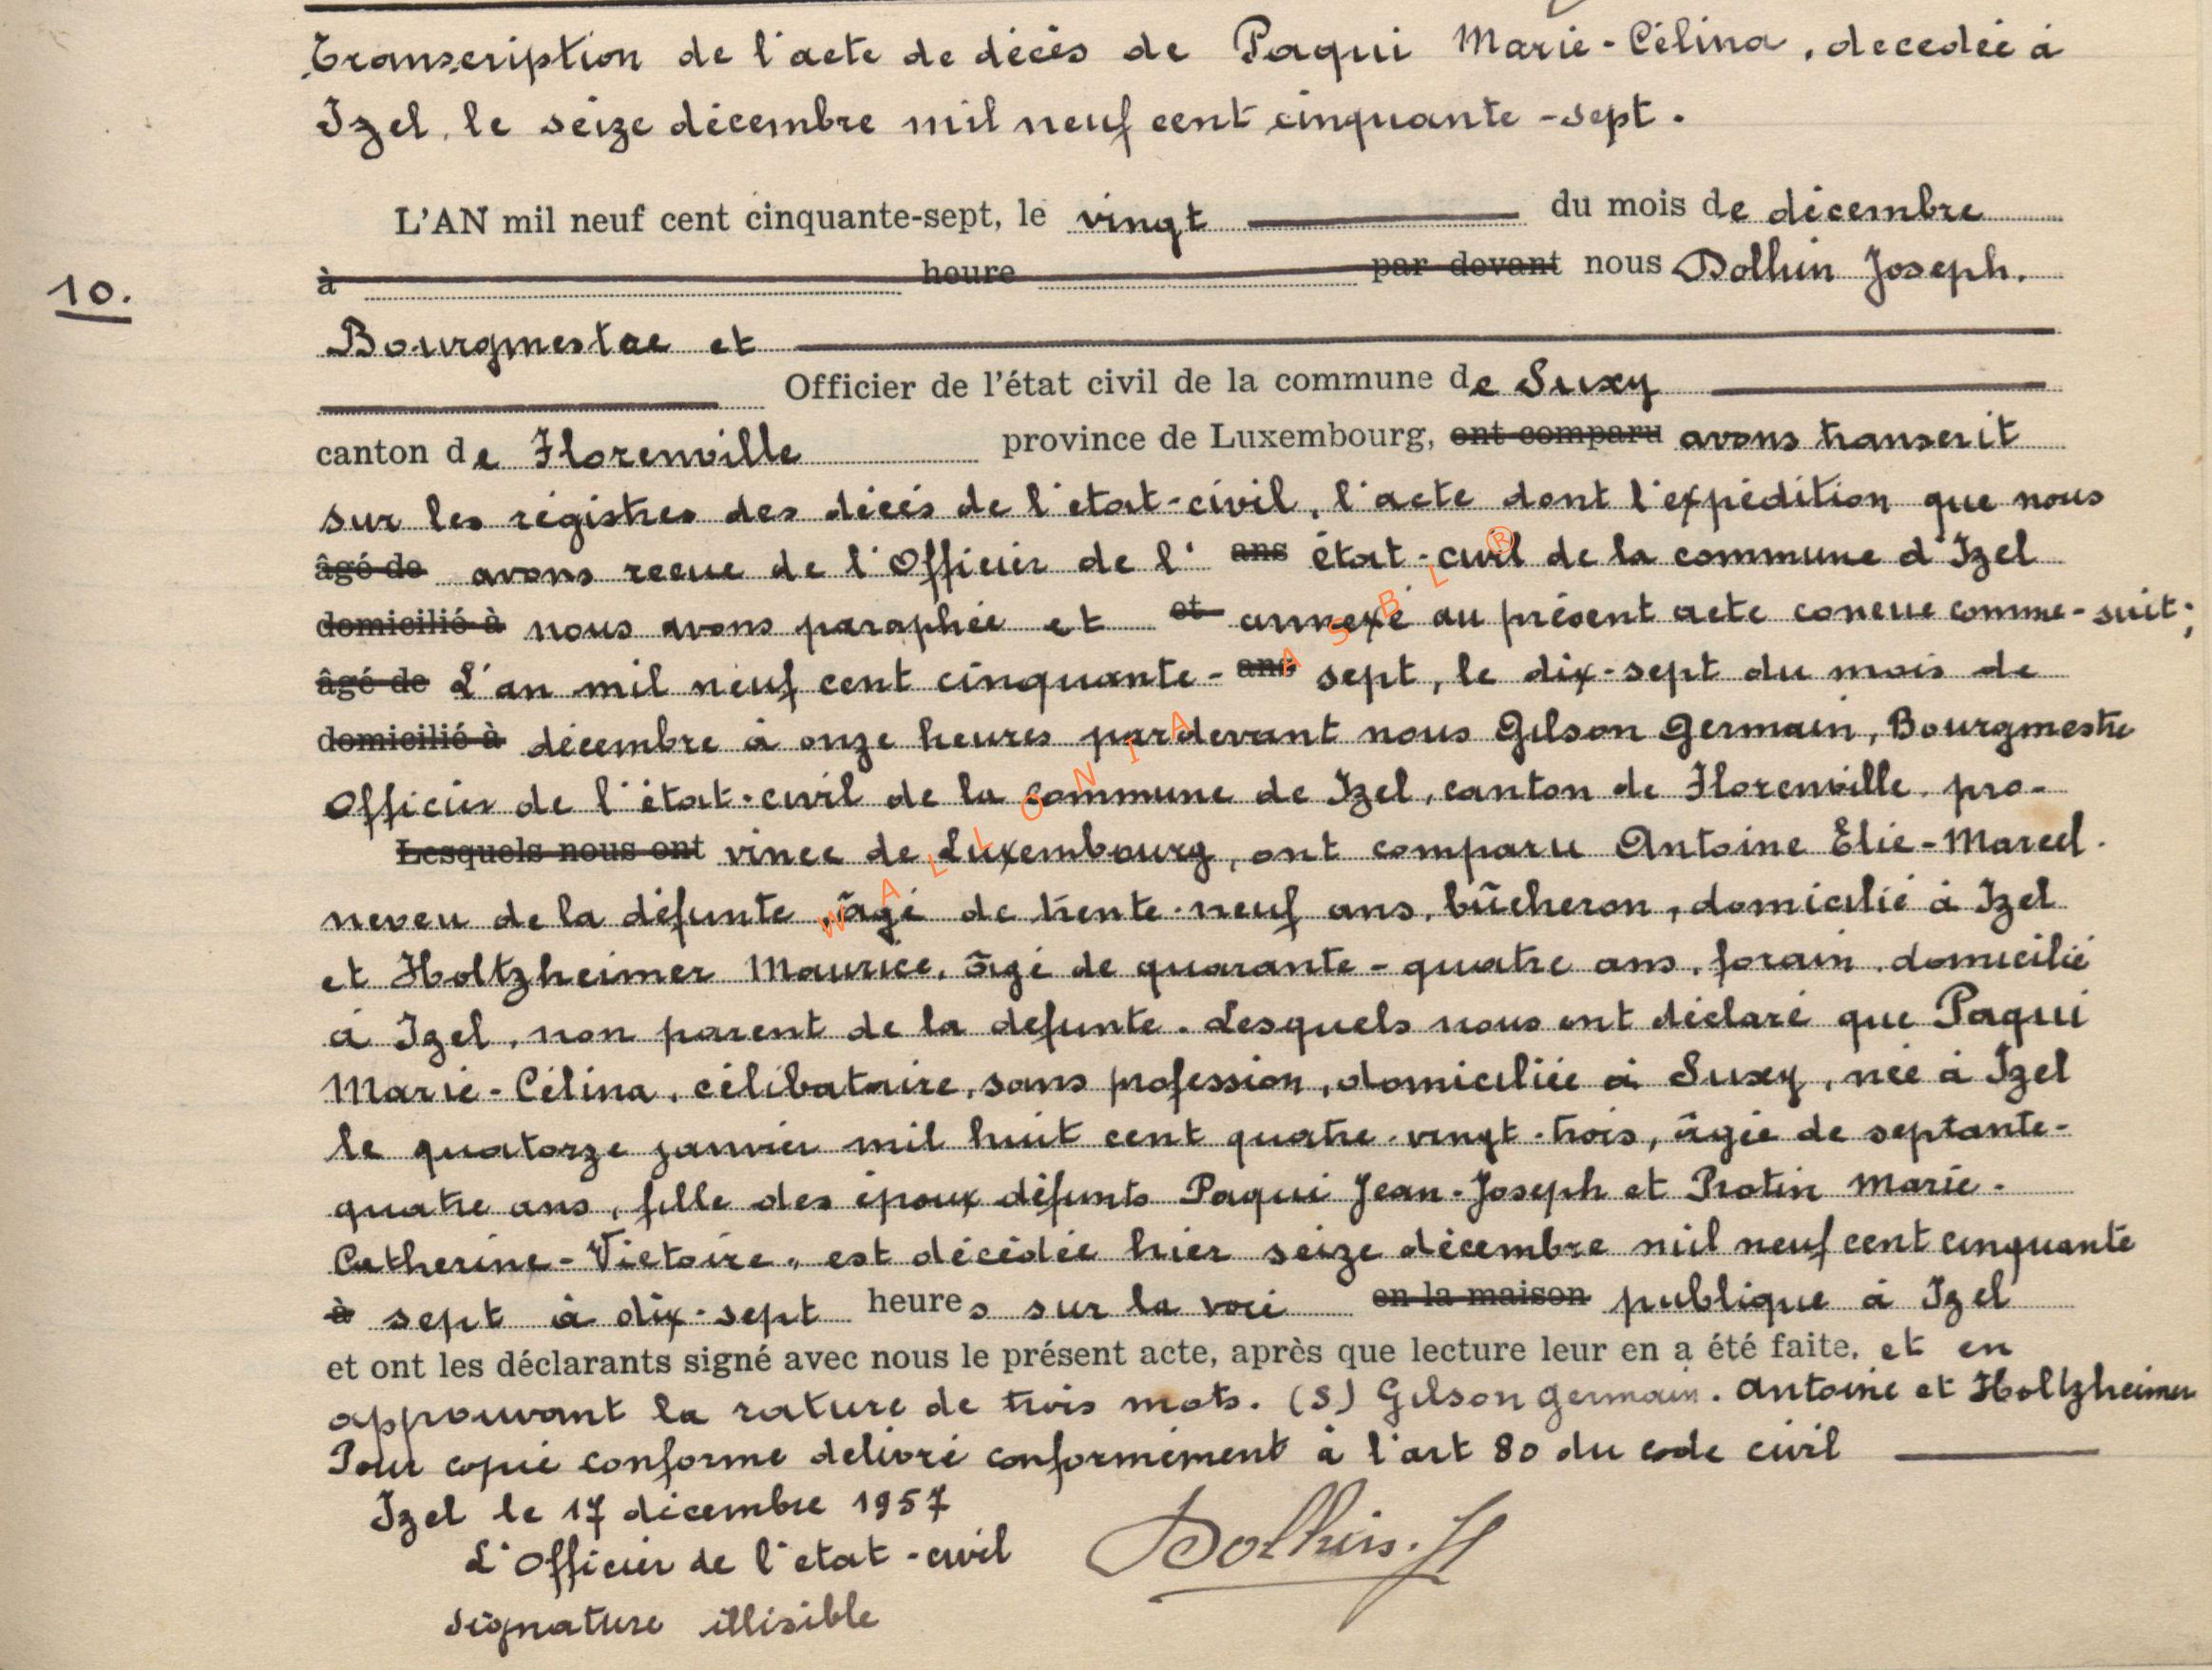 Transcription de l'acte de décès de Paqui Marie-Célina, décédée à
Izel, le seize décembre mil neuf cent cinquante-sept.
L'AN mil neuf cent cinquante-sept, le vingt du mois de décembre
à heure par devant nous Dolhin Joseph.
10.
Bourgmestre et
Officier de l'état civil de la commune de Suxy
canton de Florenville province de Luxembourg, ont comparu avons transcrit
sur les régistres des décés de l'état-civil, l'acte dont l'expédition que nous
âgé de avons recue de l'Officier de l' ans état-civil de la commune d'Izel
domicilié à nous avons paraphée et et annexé au présent acte concue comme-suit;
âgé de L'an mil neuf cent cinquante- ans sept, le dix-sept du mois de
domicilié à décembre à onze heures pardevant nous Gilson Germain, Bourgmestre
Officier de l'état-civil de la commune de Izel, canton de Florenville, pro-
Lesquels nous ont vince de Luxembourg, ont comparu Antoine Elie-Marcel.
neveu de la défunte, âgé de trente-neuf ans, bûcheron, domicilié à Izel
et Holtzheimer Maurice, âgé de quarante-quatre ans, forain, domicilié
à Izel, non parent de la défunte. Lesquels nous ont déclaré que Paqui
Marie-Célina, célibataire, sans profession, domiciliée à Suxy, née à Izel
le quatorze janvier mil huit cent quatre-vingt-trois, âgée de septante-
quatre ans, fille des époux défunts Paqui Jean-Joseph et Protin Marie-
Catherine-Victoire, est décédée hier seize décembre mil neuf cent cinquante
à sept à dix-sept heures sur la voie en la maison publique à Izel
et ont les déclarants signé avec nous le présent acte, après que lecture leur en a été faite. et en
approuvant la rature de trois mots. (S) Gilson Germain. Antoine et Holtzheimer
Pour copie conforme délivré conformément à l'art 80 du code civil
Izel le 17 décembre 1957
L'Officier de l'etat-civil
signature illisible
Dolhin. J
WALLONIA ASBL ®